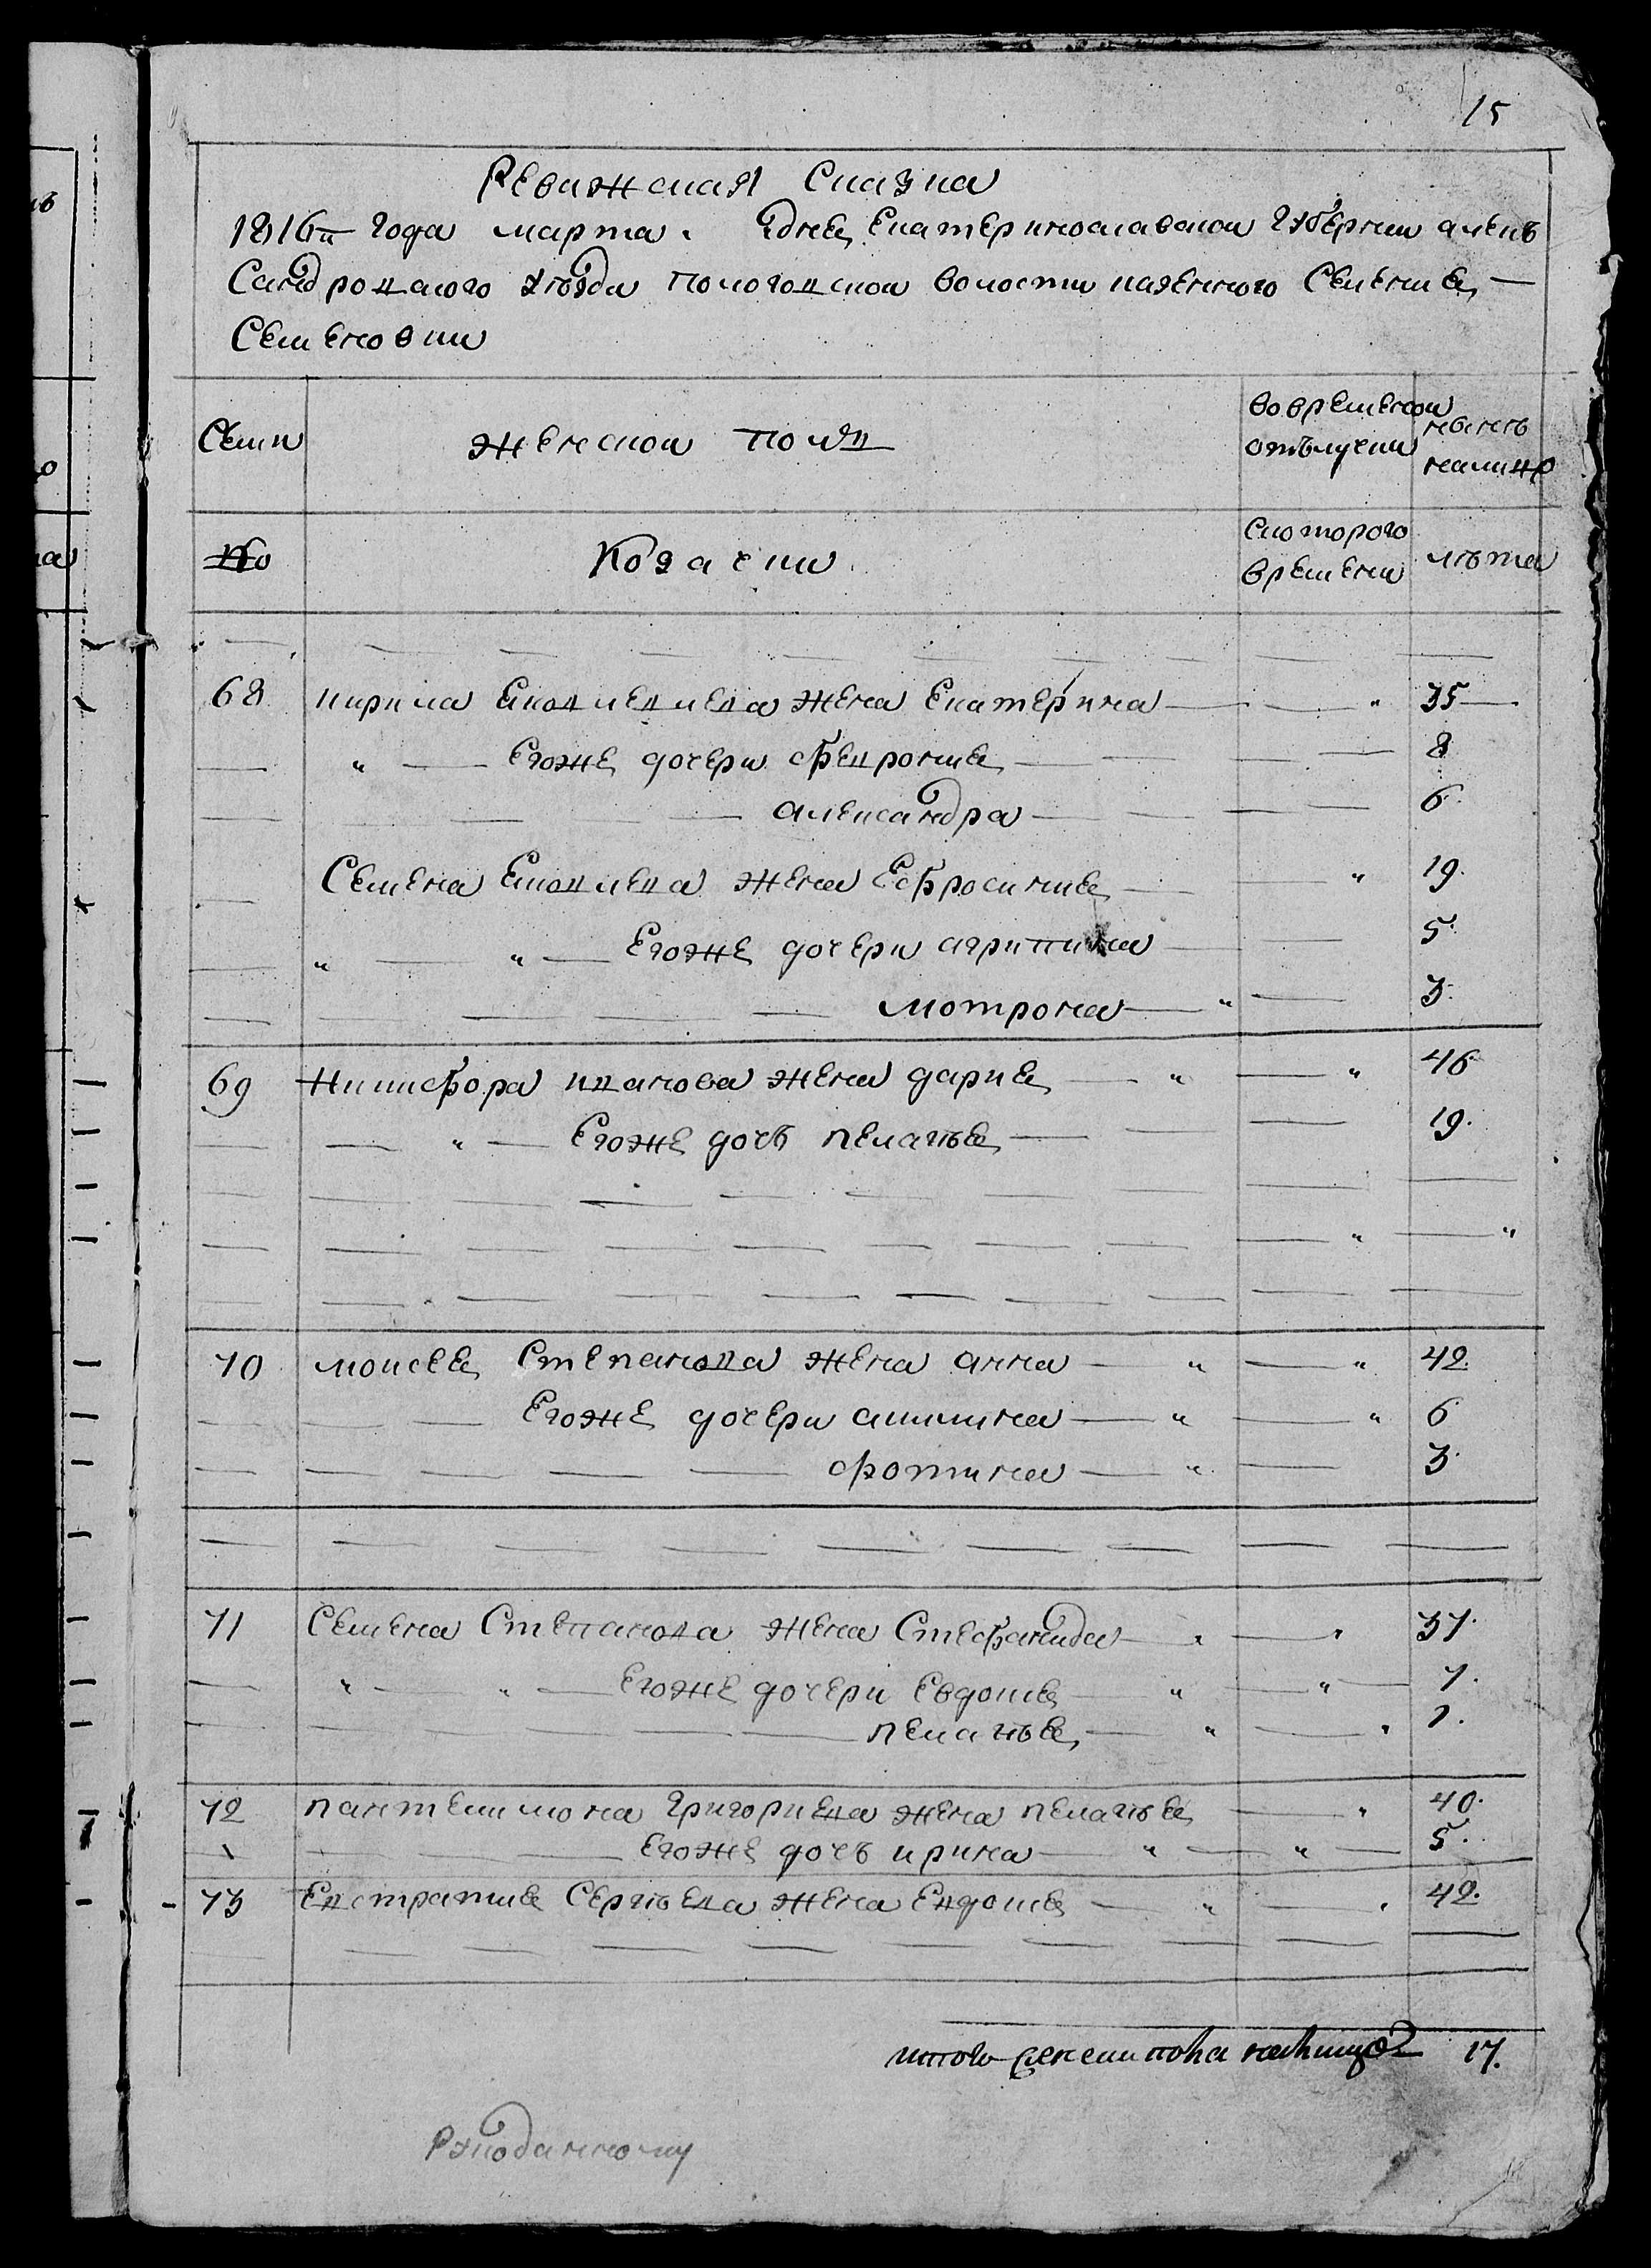 15
Ревижская Сказка
1816го года марта " дня Екатеринославской Губернии алекъ
Сандровского уезда Пологовской волости казенного Селения —
Семеновки
Семи женской полъ во временной отълучки нынѣ налицо
№ Козачки Скоторого времени лѣта
68 кирила Яковлевлева жена Екатерина 35
Егоже дочери феврония 8
александра 6
Семена Яковлева жена Ефросиния 19
Егоже дочери агрипина 5
мотрона 3
69 Никифора иванова жена дария 46
Егоже дочь пелагѣя 19
70 моисея Степанова жена анна 42
Егоже дочери акилина 6
фотина 3
71 Семена Степанова жена Стефанида 37
Егоже дочери Евдокия 7
пелагѣя 1
72 пантелимона григориева жена пелагѣя 40
Егоже дочь ирина 5
73 Евстратия Сергѣева жена Евдокия 42
итого женска пола налицо 17